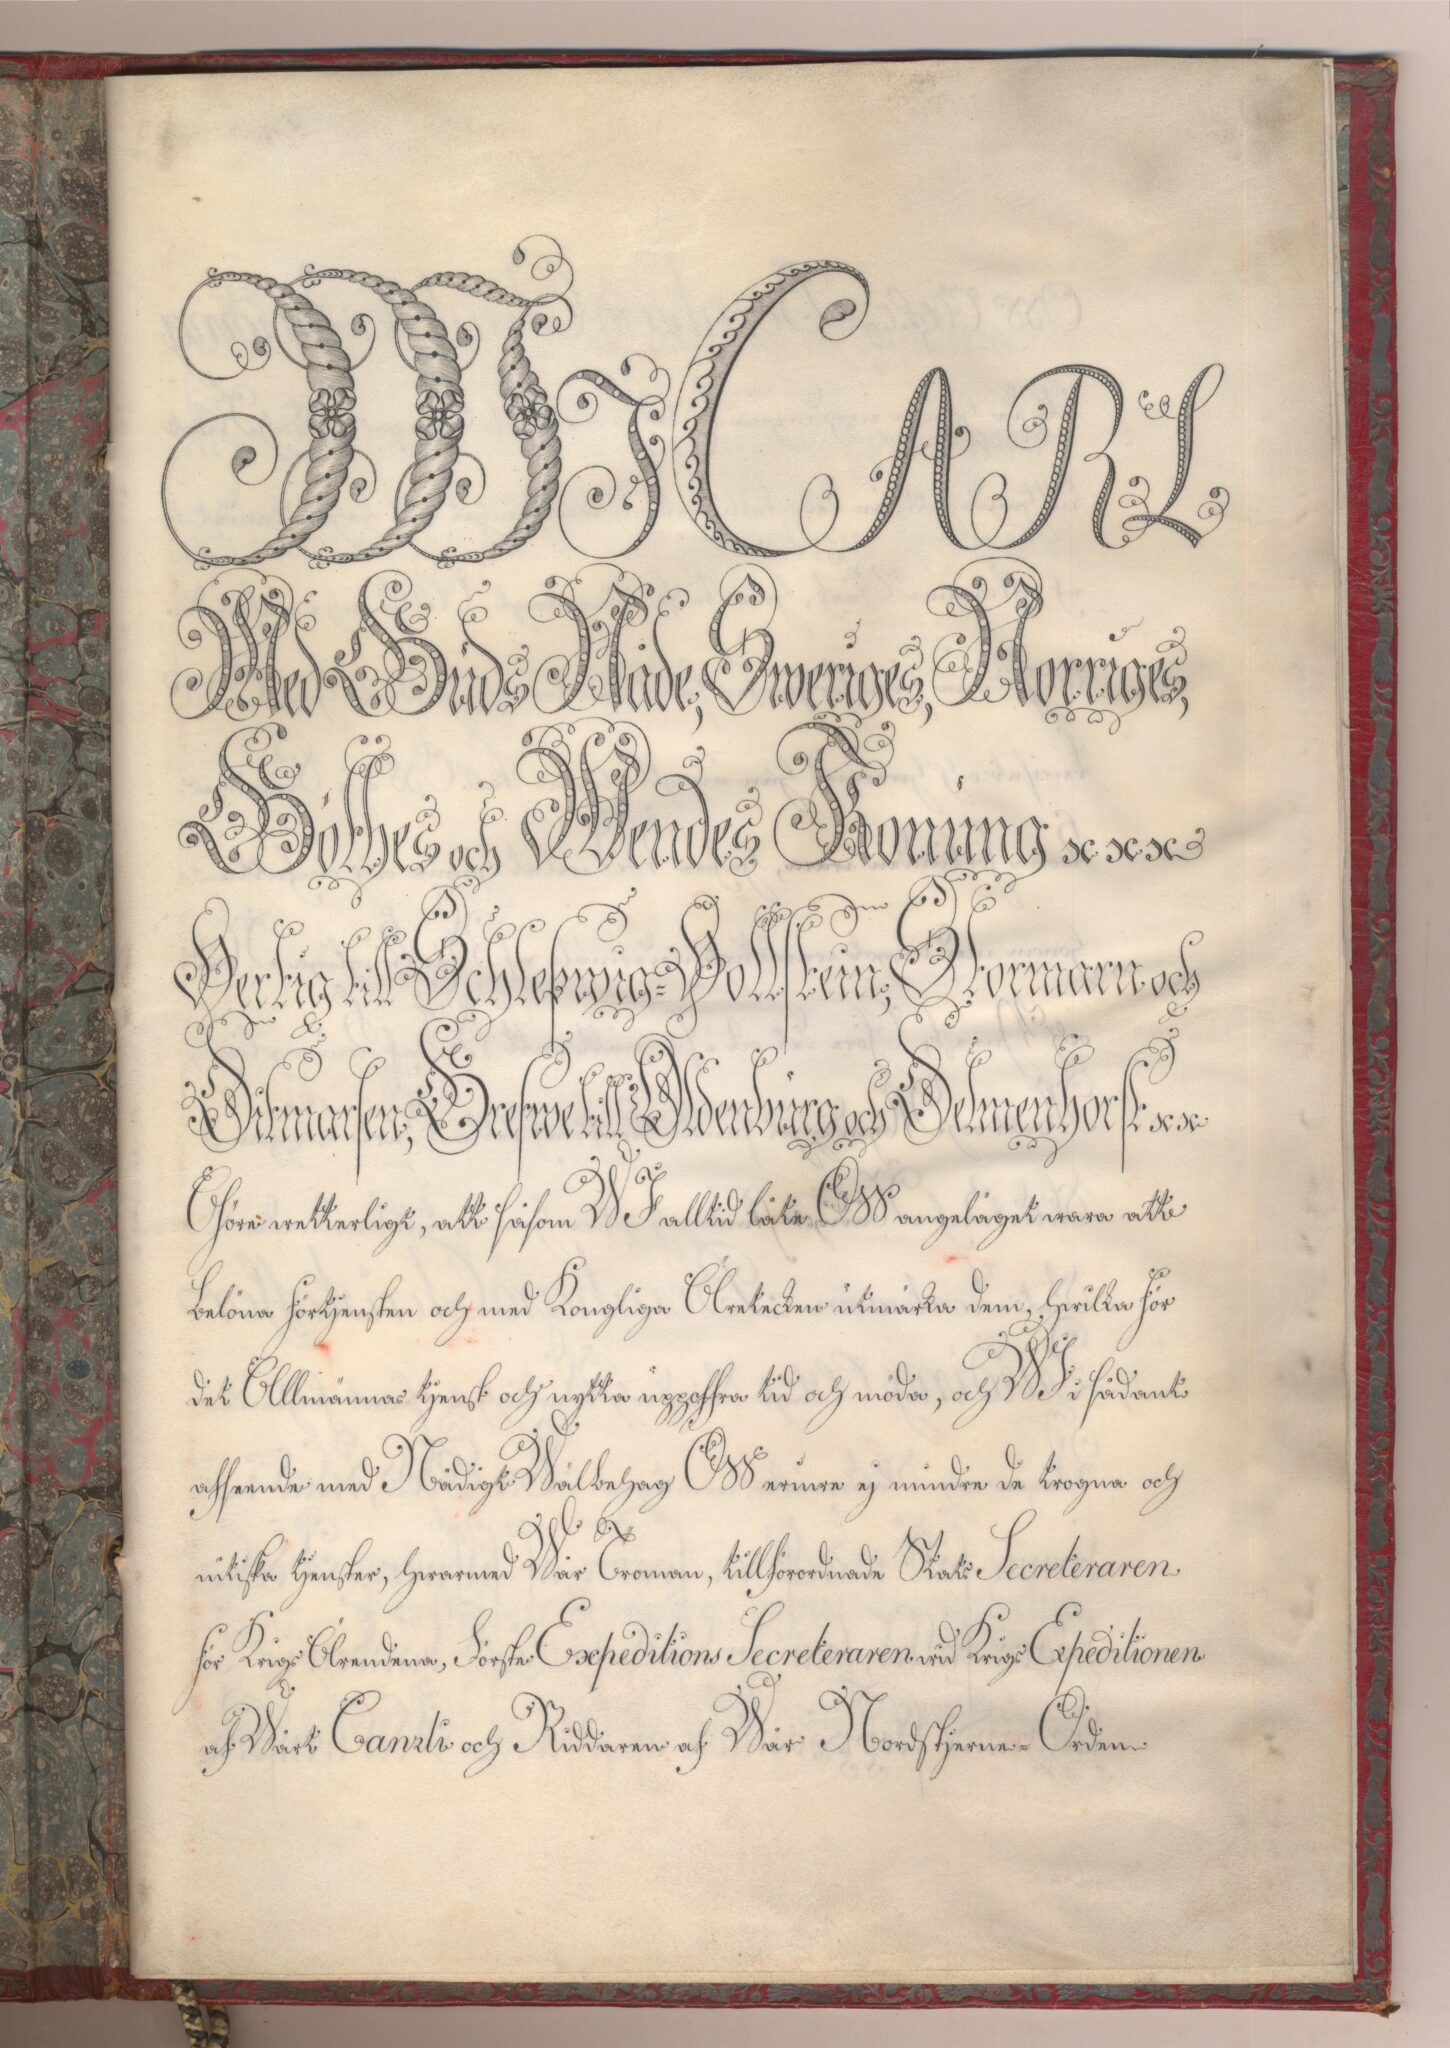 Wi CARL
Med Guds Nåde, Sweriges, Norriges,
Göthes och Wendes Konung &c &c &c
Hertig till Schleßwig-Hollstein, Stormarn och
Ditmarsen, Grefwe till Oldenburg och Delmenhorst &c &c
Göre wetterligt, att såsom WI alltid låte OSS angeläget wara att
belöna förtjensten och med Kongliga Äretecken utmärka dem, hwilka för
det Allmännas tjenst och nytta uppoffra tid och möda, och WI i sådant
afseende med Nådigt Wälbehag OSS erinre ej mindre de trogna och
nitiska tjenster, hwarmed Wår Troman, tillförordnade Stats Secreteraren
för Krigs Ärendena, Förste Expeditions Secreteraren wid Krigs Expeditionen
af Wårt Cansli och Riddaren af Wår Nordstjerne-Orden